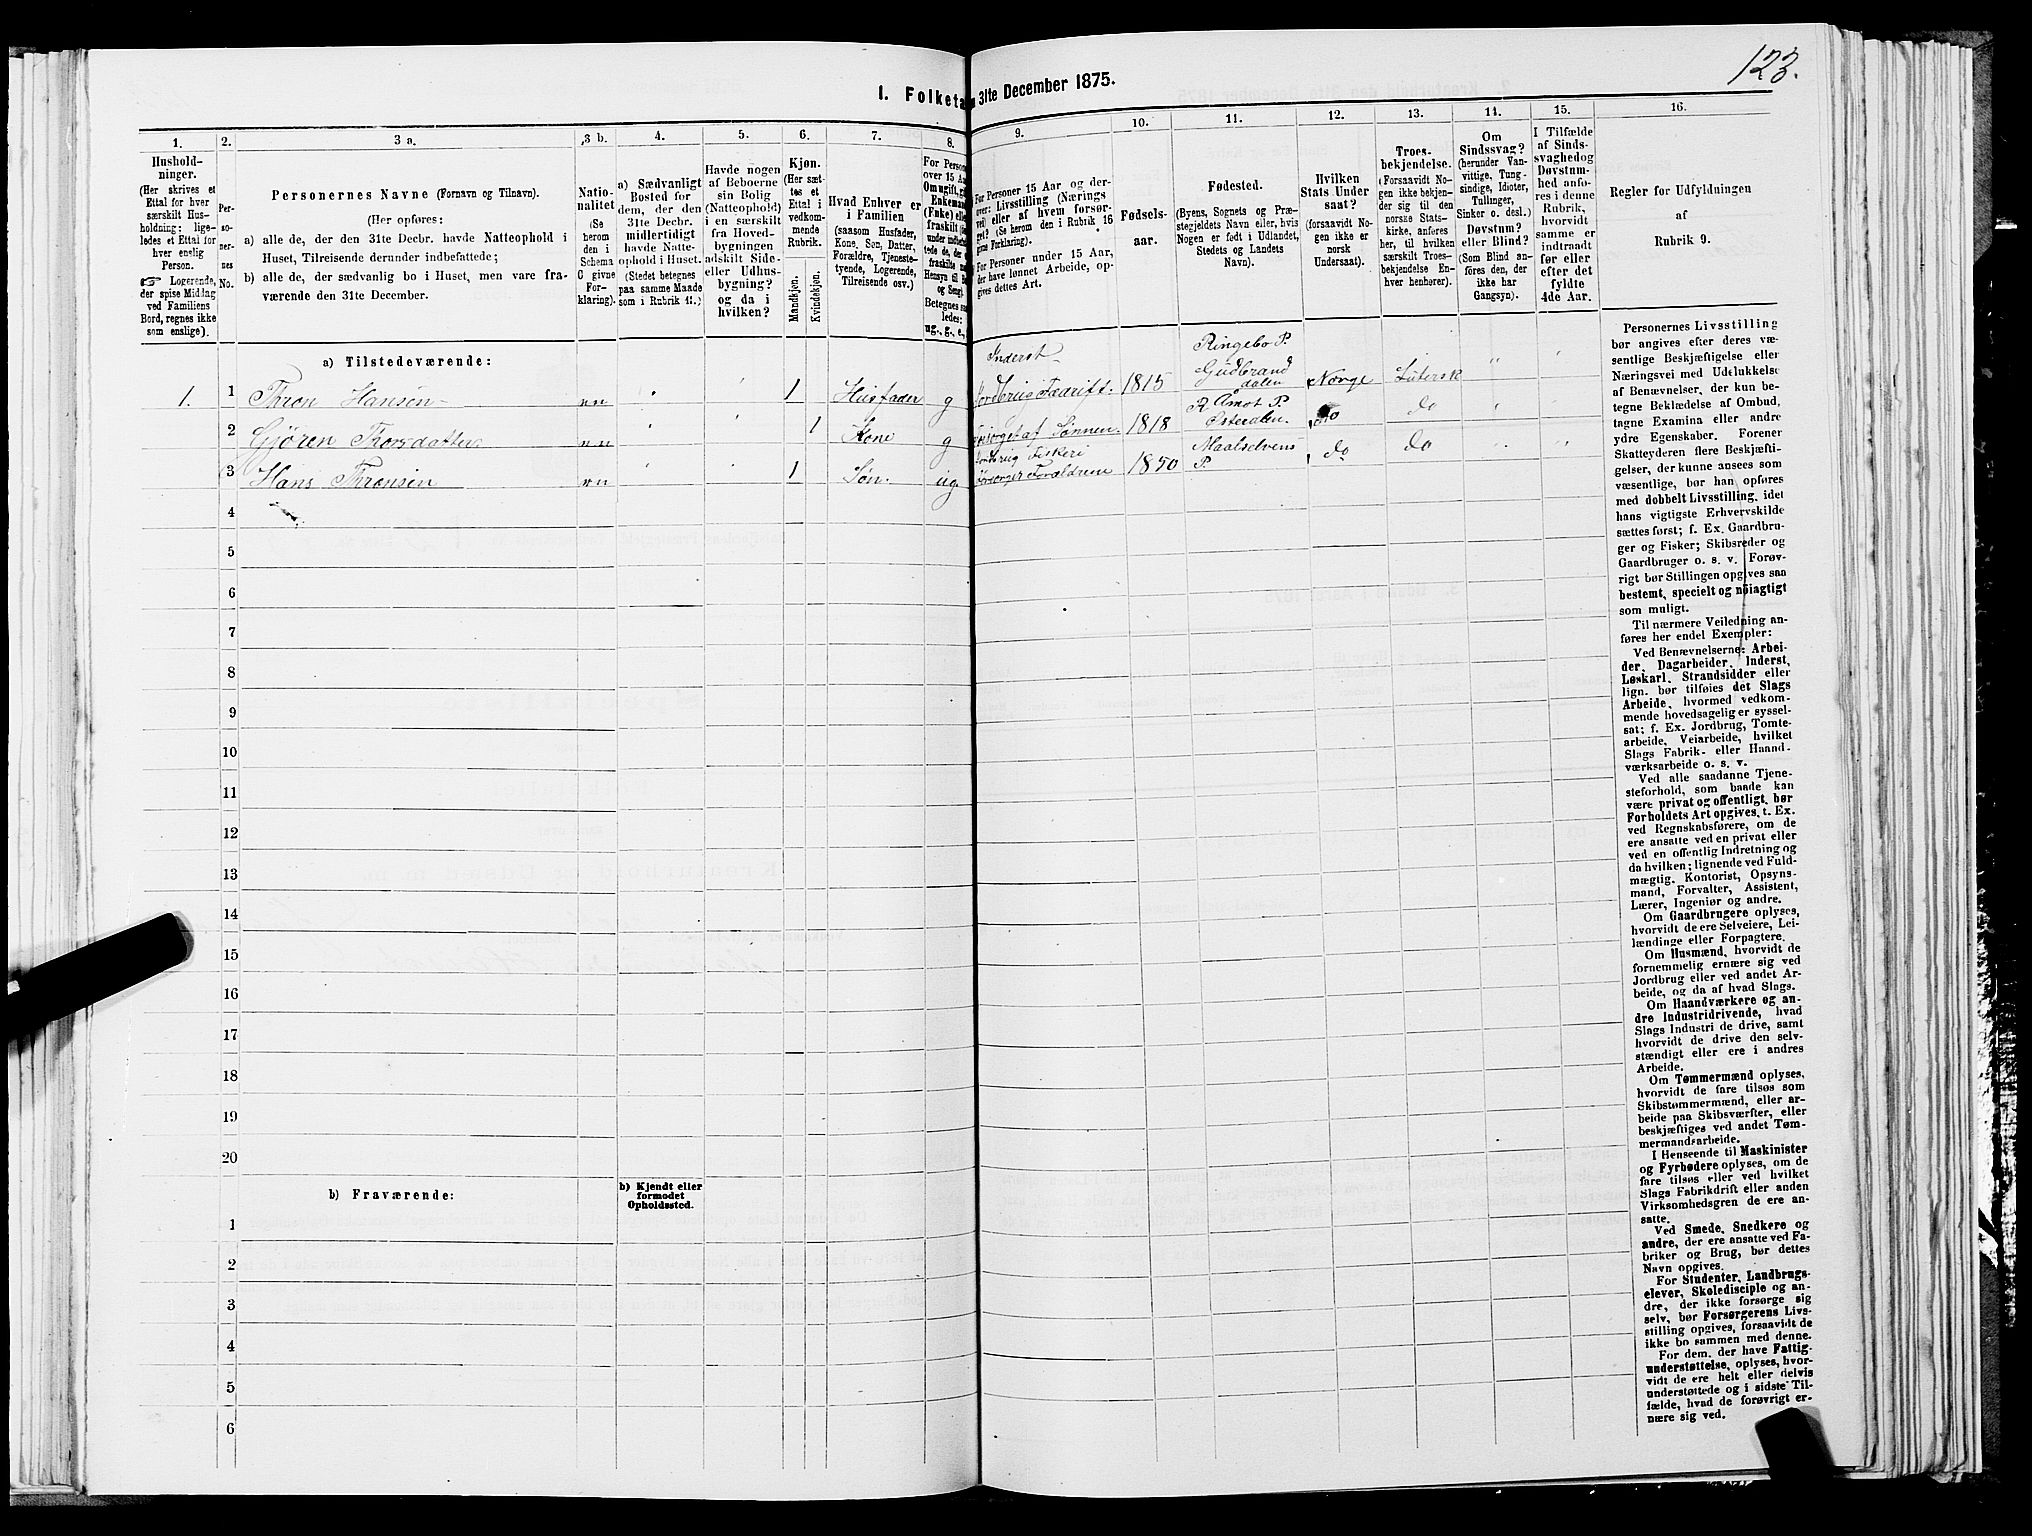 123.
I. Folketa
31te December 1875.
1.
2.
3 a.
3 b.
4.
5.
6.
7.
8.
9.
10.
11.
12.
13.
14.
15.
16.
Hushold-
ninger.
(Her skrives et
Ettal for hver
særskilt Hus-
holdning; lige-
ledes et Ettal for
hver enslig
Person.
☞ Logerende,
der spise Middag
ved Familiens
Bord, regnes ikke
som enslige).
Per-
so-
ner-
nes
No.
Personernes Navne (Fornavn og Tilnavn).
(Her opføres:
a) alle de, der den 31te Decbr. havde Natteophold i
Huset, Tilreisende derunder indbefattede;
b) alle de, der sædvanlig bo i Huset, men vare fra-
værende den 31te December.
Natio-
nalitet
(Se
herom
den i
Schema
C givne
For-
klaring).
a) Sædvanligt
Bosted for
dem, der den
31te Decbr.
midlertidigt
havde Natte-
ophold i Huset.
(Stedet betegnes
paa samme Maade
som i Rubrik 11.)
Havde nogen
af Beboerne
sin Bolig
(Natteophold)
i en særskilt
fra Hoved-
bygningen
adskilt Side-
eller Udhus-
bygning?
og da i
hvilken?
Kjøn.
(Her sæt-
tes et
Ettal i
vedkom-
mende
Rubrik.
Mandkjøn.
Kvindekjøn.
Hvad Enhver er
i Familien
(saasom Husfader,
Kone, Søn, Datter,
Forældre, Tjeneste-
tyende, Logerende,
Tilreisende osv.)
For Person
over 15 Aa
Om ugift, gif
Enkeman
(Enke) elle
fraskilt
Betegnes saa
ledes:
ug., g., e.,
For Personer 15 Aar og der-
over: Livsstilling (Nærings
vei) eller af hvem forsør-
get? (Se herom den i Rubrik 16
givne Forklaring).
For Personer under 15 Aar,
der have lønnet Arbeide, op-
gives dettes Art.
Fødsels-
aar.
Fødested.
(Byens, Sognets og Præ-
stegjeldets Navn eller, hvis
Nogen er født i Udlandet,
Stedets og Landets
Navn).
Hvilken
Stats Under
saat?
(forsaavidt No-
gen ikke er
norsk
Undersaat).
Troes-
bekjendelse.
(Forsaavidt No-
gen ikke bekjen-
der sig til den
norske Stats-
kirke, anføres
her, til hvilken
Troesbe-
kjendelse En-
hver henhører).
Om
Sindssvag?
(herunder Van-
vittige, Tung-
sindige, Idioter,
Tullinger,
Sinker o. desl.)
Døvstum?
eller Blind?
(Som Blind an-
føres den, der
ikke har
Gangsyn).
I Tilfælde
af Sinds-
svaghed og
Døvstum-
hed anfø-
res i denne
Rubrik,
hvorvidt
samme er
indtraadt
før eller
efter det
fyldte
4de Aar.
Regler for Udfyldningen
af
Rubrik 9.
a) Tilstedeværende:
1. 1 Thron Hansen n n " " 1 Husfader g Inderst Jordbrug Fædrift. 1815 Ringebo P. Gudbrand dalen Norge Lutersk " "
2 Gjören Thorsdatter n n " " 1 Kone g forsørget af Sønnen. 1818 R Åmot P. Østerdalen. do do "
3 Hans Thronsen n n " " 1 Søn. ug. Jordbrug Fiskeri forsørger Forældrene 1850 Maalselvens P. do do " "
4
5
6
7
8
9
10
11
12
13
14
15
16
17
18
19
20
b) Fraværende:
b) Kjendt eller
formodet
Opholdssted.
1
2
3
4
5
6
Personernes Livsstilling
bør angives efter deres væ-
sentlige Beskjæftigelse eller
Næringsvei med Udelukkelse
af Benævnelser, der kun be-
tegne Beklædelse af Ombud,
tagne Examina eller andre
ydre Egenskaber. Forener
Skatteyderen flere Beskjæfti-
gelser, der kunne ansees som
væsentlige, bør han opføres
med dobbelt Livsstilling, idet
hans vigtigste Erhvervskilde
sættes først; f. Ex. Gaardbru-
ger og Fisker; Skibsreder og
Gaardbruger o. s. v. Forøv-
rigt bør Stillingen opgives saa
bestemt, specielt og nøiagtigt
som muligt.
Til nærmere Veiledning an-
føres her endel Exempler:
Ved Benævnelserne: Arbei-
der, Dagarbeider, Inderst,
Løskarl, Strandsidder eller
lign. bør tilføies det Slags
Arbeide, hvormed vedkom-
mende hovedsagelig er syssel-
sat; f. Ex. Jordbrug, Tomte-
arbeide, Veiarbeide, hvilket
Slags Fabrik- eller Haand-
værksarbeide o. s. v.
Ved alle saadanne Tjene-
steforhold, som baade kan
være privat og offentligt, bør
Forholdets Art opgives, t. Ex.
ved Regnskabsførere, om de
ere ansatte ved en privat eller
ved en offentlig Indretning og
da hvilken; lignende ved Fuld-
mægtig, Kontorist, Opsyns-
mand, Forvalter, Assistent,
Lærer, Ingeniør og andre.
Om Gaardbrugere oplyses,
hvorvidt de ere Selveiere, Lei-
lændinge eller Forpagtere.
Om Husmænd, hvorvidt de
fornemmelig ernære sig ved
Jordbrug eller ved andet Ar-
beide, og da af hvad Slags.
Om Haandværkere og an-
dre Industridrivende, hvad
Slags Industri de drive, samt
hvorvidt de drive den selv-
stændigt eller ere i andres
Arbeide.
Om Tømmermænd oplyses,
hvorvidt de fare tilsøs som
Skibstømmermænd, eller ar-
beide paa Skibsværfter, eller
beskjæftiges ved andet Tøm-
mermandsarbeide.
I Henseende til Maskinister
og Fyrbødere oplyses, om de
fare tilsøs eller ved hvilket
Slags Fabrikdrift eller anden
Virksomhedsgren de ere an-
satte.
Ved Smede, Snedkere og
andre, der ere ansatte ved Fa-
briker og Brug, bør dettes
Navn opgives.
For Studenter, Landbrugs-
elever, Skoledisciple og an-
dre, der ikke forsørge sig
selv, bør Forsørgerens Livs-
stilling opgives, forsaavidt de
ikke bo sammen med denne.
For dem, der have Fattig-
understøttelse, oplyses, hvor-
vidt de ere helt eller delvis
understøttede og i sidste Til-
fælde, hvad de forøvrigt er-
nære sig ved.